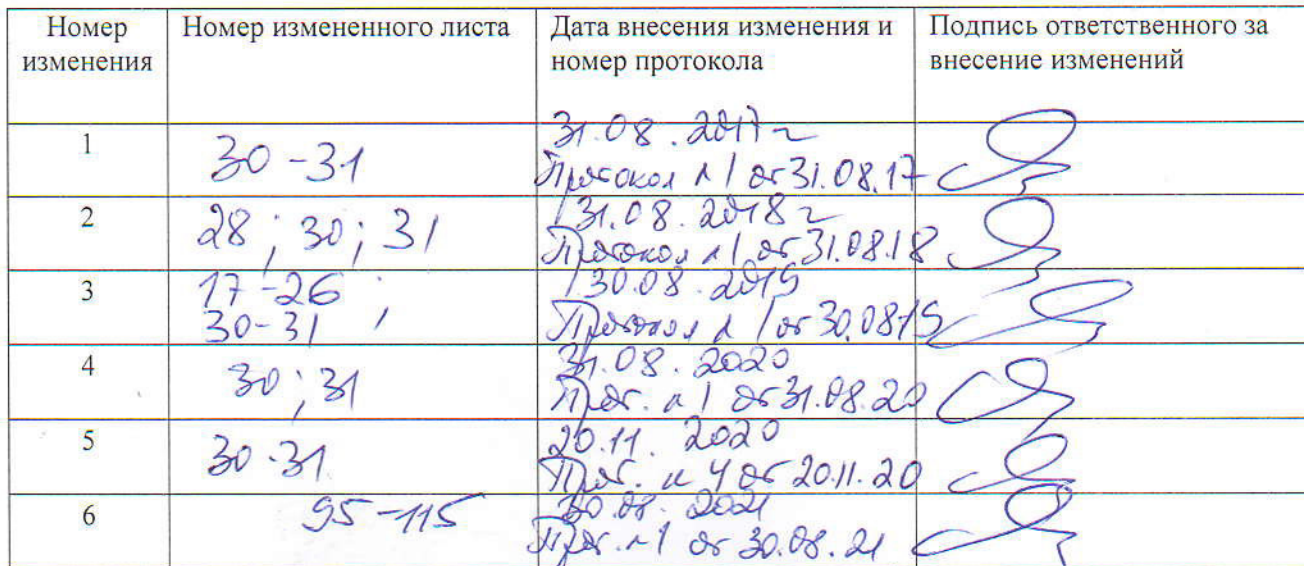 Номер изменения
Номер измененного листа
Дата внесения изменения и номер протокола
Подпись ответственного за внесение изменений
1
30-31
31.08.2017 г
Протокол n 1 от 31.08.17
2
28; 30; 31
31.08.2018 г
Протокол n 1 от 31.08.18
3
17-26;
30-31
30.08.2019
Протокол n 1 от 30.08.19
4
30; 31
31.08.2020
Прот. n 1 от 31.08.20
5
30-31
20.11.2020
Прот. n 4 от 20.11.20
6
95-115
30.08.2021
Прот. n 1 от 30.08.21